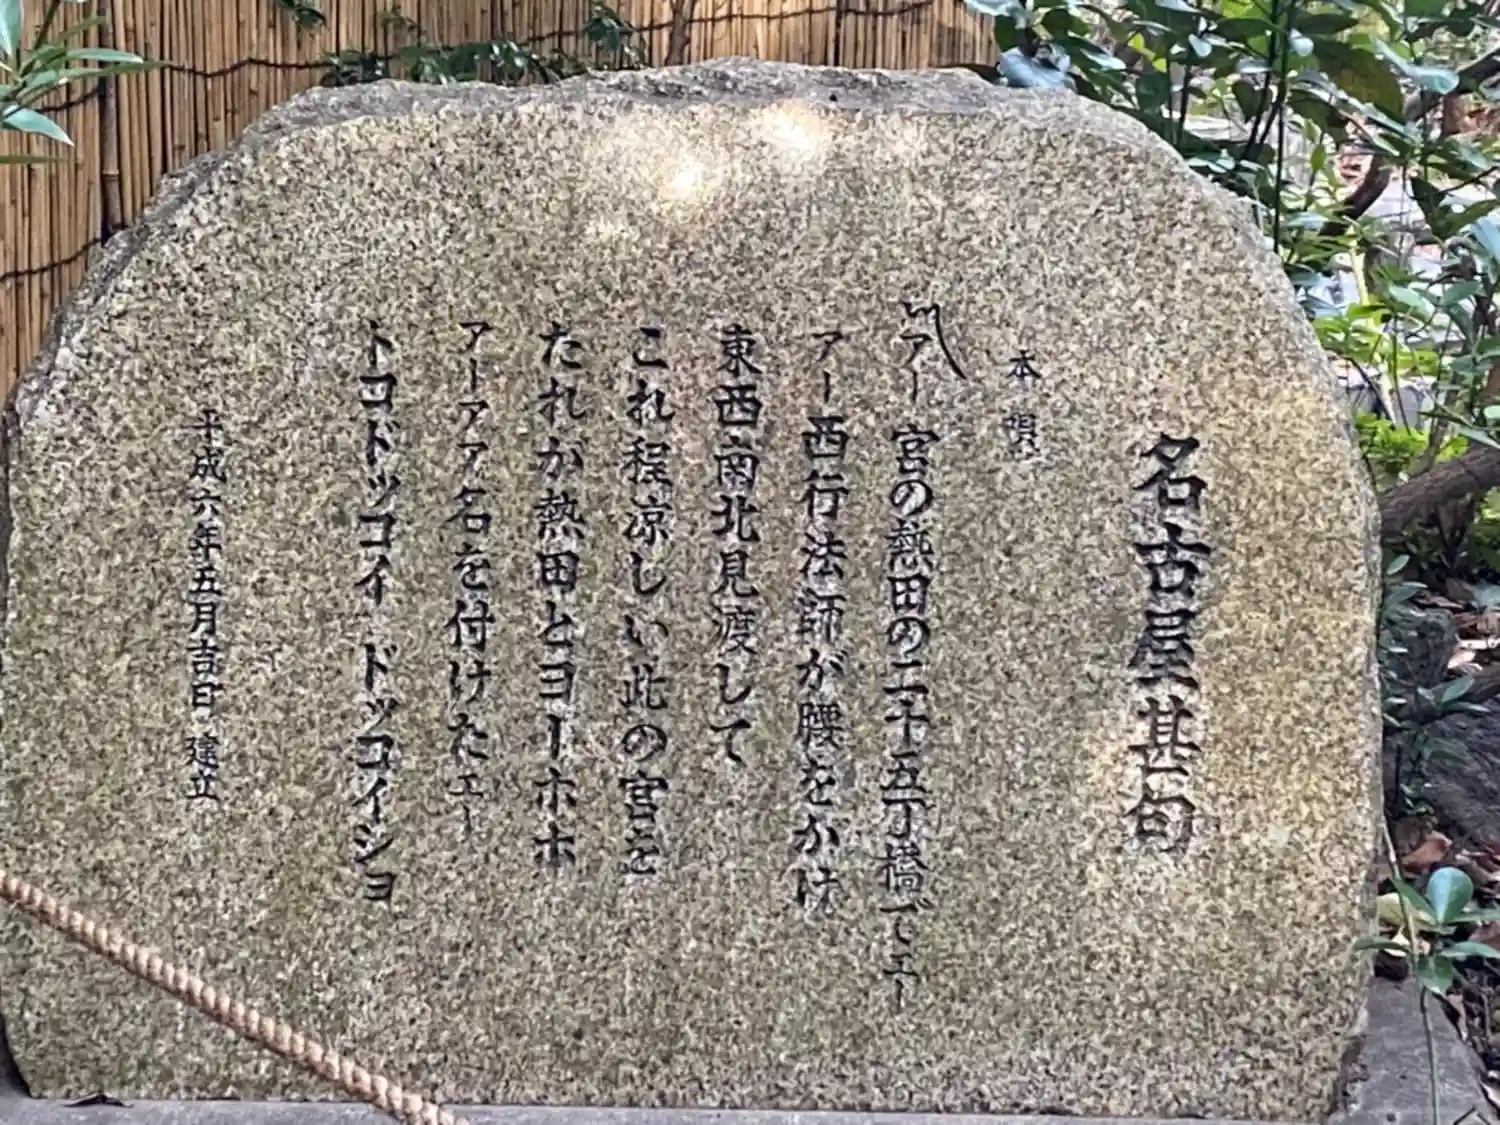 名古屋甚句
本唄
〽アー宮の熱田の二十五丁橋でエー
アー西行法師が腰をかけ
東西南北見渡して
これ程涼しい此の宮を
たれが熱田とヨーホホ
アーアア名を付けたエー
トコドッコイドッコイショ
平成六年五月吉日 建立